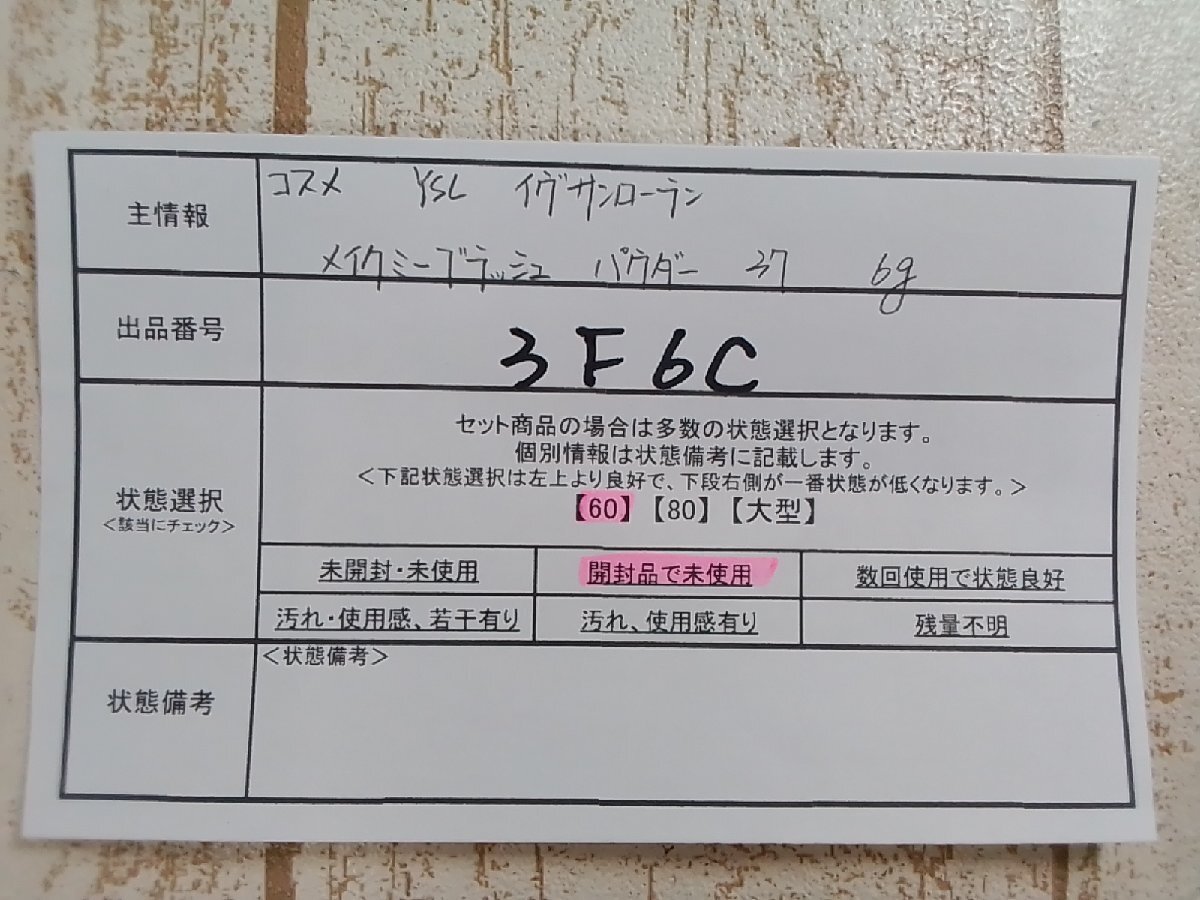 主情報
コスメ YSL イヴサンローラン
メイクミーブラッシュ パウダー 37 6g
出品番号
3F6C
状態選択
<該当にチェック>
セット商品の場合は多数の状態選択となります。
個別情報は状態備考に記載します。
<下記状態選択は左上より良好で、下段右側が一番状態が低くなります。>
【60】【80】【大型】
未開封・未使用 開封品で未使用 数回使用で状態良好
汚れ・使用感、若干有り 汚れ、使用感有り 残量不明
状態備考
<状態備考>